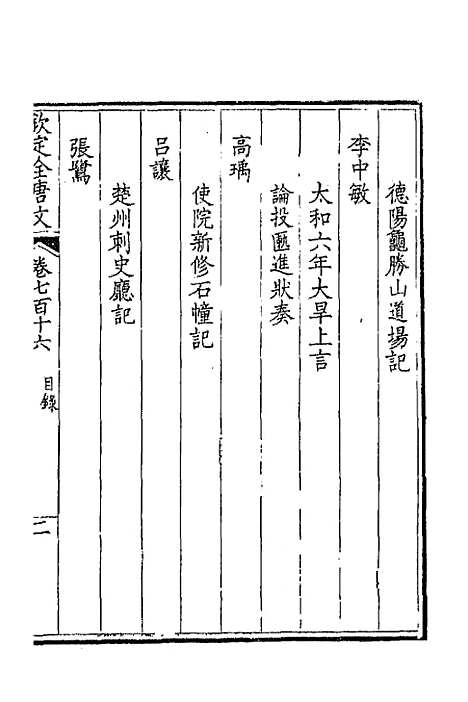 德陽龜勝山道場記
李中敏
太和六年大旱上言
論投匭進狀奏
高瑀
使院新修石幢記
呂讓
楚州刺史廳記
張鷺
欽定全唐文 卷七百十六 目錄 二